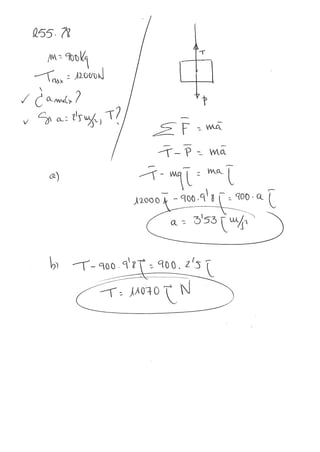 255.78
m = 900Kg
Tmax = 12000N
✓ ¿a máx?
✓ Si a = 2'5 m/s², T?
T
P
Σ F̄ = mā
T̄ - P̄ = mā
a) T̄ - mg j̄ = ma j̄
12000 j̄ - 900·9'8 j̄ = 900·a j̄
a = 3'53 j̄ m/s²
b) T - 900·9'8 j̄ = 900·2'5 j̄
T = 11070 j̄ N